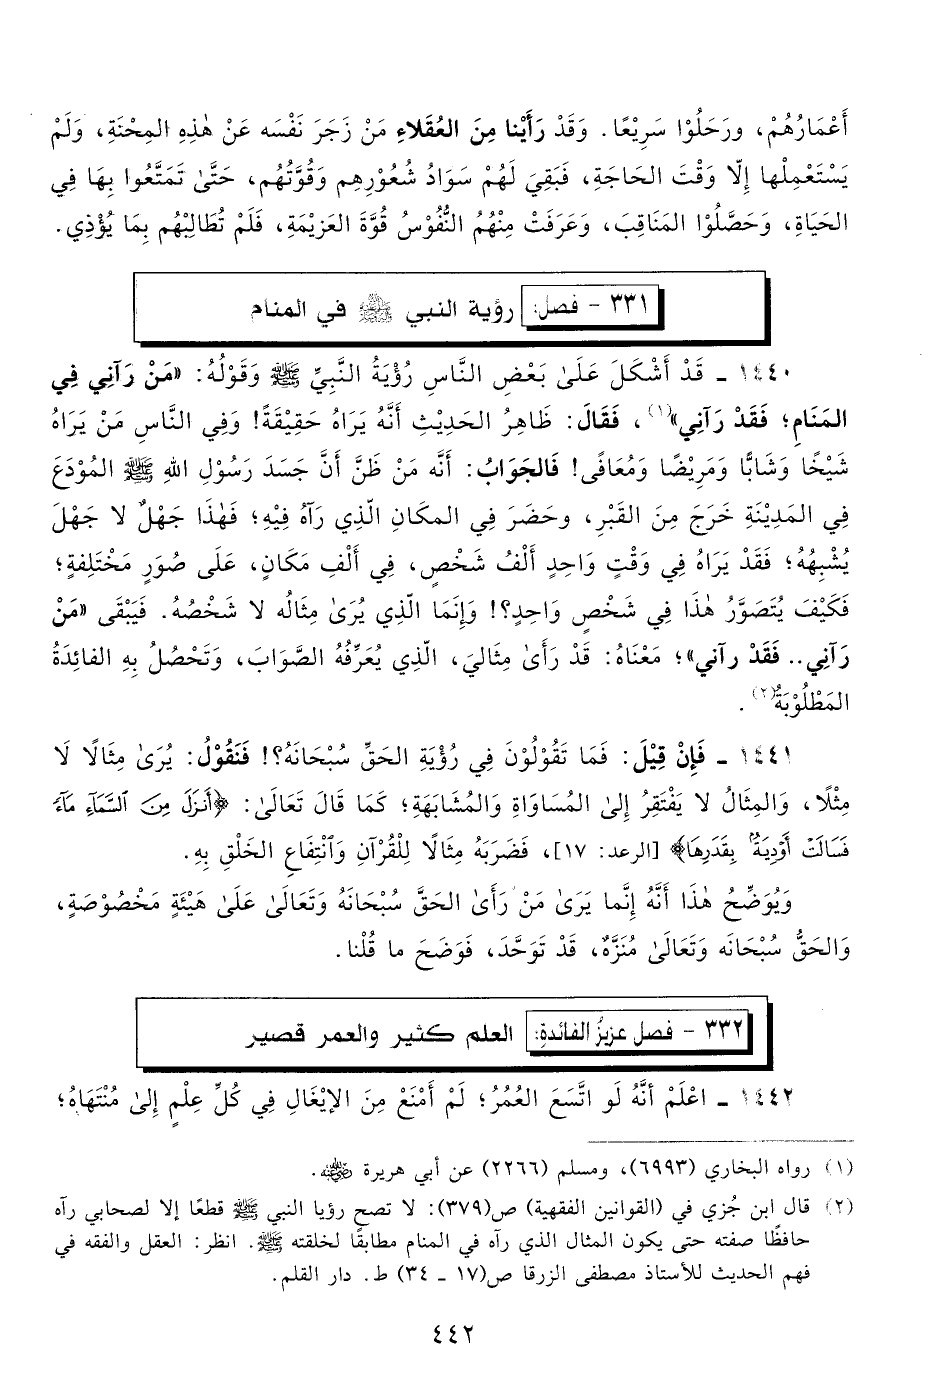 أَعْمَارُهُمْ، ورَحَلُوْا سَرِيْعًا. وَقَدْ رَأَيْنا مِنَ العُقَلاءِ مَنْ زَجَرَ نَفْسَه عَنْ هٰذِهِ المِحْنَةِ، وَلَمْ
يَسْتَعْمِلْها إِلّا وَقْتَ الحَاجَةِ، فَبَقِيَ لَهُمْ سَوَادُ شُعُوْرِهِم وَقُوَّتُهُم، حَتَّىٰ تَمَتَّعُوا بِهَا فِي
الحَيَاةِ، وَحَصَّلُوْا المَنَاقِبَ، وَعَرَفَتْ مِنْهُمُ النُّفُوْسُ قُوَّةَ العَزِيْمَةِ، فَلَمْ تُطَالِبْهُم بِمَا يُؤْذِي.
٣٣١ - فصل: رؤية النبي ﷺ في المنام
١٤٤٠ ـ قَدْ أَشْكَلَ عَلَىٰ بَعْضِ النَّاسِ رُؤْيَةُ النَّبِيِّ ﷺ وَقَوْلُهُ: «مَنْ رَآنِي فِي
المَنَامِ؛ فَقَدْ رَآنِي»(١)، فَقَالَ: ظَاهِرُ الحَدِيْثِ أَنَّهُ يَرَاهُ حَقِيْقَةً! وَفِي النَّاسِ مَنْ يَرَاهُ
شَيْخًا وَشَابًّا وَمَرِيْضًا وَمُعَافًى! فَالجَوَابُ: أَنَّه مَنْ ظَنَّ أَنَّ جَسَدَ رَسُوْلِ اللهِ ﷺ المُوْدَعَ
فِي المَدِيْنَةِ خَرَجَ مِنَ القَبْرِ، وحَضَرَ فِي المكَانِ الَّذِي رَآهُ فِيْهِ؛ فَهٰذَا جَهْلٌ لا جَهْلَ
يُشْبِهُهُ؛ فَقَدْ يَرَاهُ فِي وَقْتٍ وَاحِدٍ أَلْفُ شَخْصٍ، فِي أَلْفِ مَكَانٍ، عَلَى صُوَرٍ مَخْتَلِفَةٍ؛
فَكَيْفَ يُتَصَوَّرُ هٰذَا فِي شَخْصٍ وَاحِدٍ؟! وَإِنَمَا الَّذِي يُرَىٰ مِثَالُه لا شَخْصُهُ. فَيَبْقَى «مَنْ
رَآنِي.. فَقَدْ رآني»؛ مَعْنَاهُ: قَدْ رَأَىٰ مِثَاليَ، الّذِي يُعَرِّفُهُ الصَّوَابَ، وَتَحْصُلُ بِهِ الفائِدَةُ
المَطْلُوْبَةُ(٢).
١٤٤١ ـ فَإِنْ قِيْلَ: فَمَا تَقُوْلُوْنَ فِي رُؤْيَةِ الحَقِّ سُبْحَانَهُ؟! فَنَقُوْلُ: يُرَىٰ مِثَالًا لَا
مِثْلًا، وَالمِثَالُ لا يَفْتَقِرُ إِلىٰ المُسَاوَاةِ وَالمُشَابَهَةِ؛ كَمَا قَالَ تَعَالَىٰ: ﴿أَنزَلَ مِنَ ٱلسَّمَآءِ مَآءً
فَسَالَتْ أَوْدِيَةٌۢ بِقَدَرِهَا﴾ [الرعد: ١٧]، فَضَرَبَهُ مِثَالًا لِلْقُرْآنِ وَٱنْتِفَاعِ الخَلْقِ بِهِ.
وَيُوَضِّحُ هٰذَا أَنَّهُ إِنَّما يَرَىٰ مَنْ رَأَىٰ الحَقَّ سُبْحَانَهُ وَتَعَالَىٰ عَلَىٰ هَيْئَةٍ مَخْصُوْصَةٍ،
وَالحَقُّ سُبْحَانَه وَتَعَالَىٰ مُنَزَّهٌ، قَدْ تَوَحَّدَ، فَوَضَحَ ما قُلْنا.
٣٣٢ - فصل عزيزُ الفائدة: العلم كثير والعمر قصير
١٤٤٢ ـ اعْلَمْ أَنَّهُ لَو اتَّسَعَ العُمُرُ؛ لَمْ أَمْنَعْ مِنَ الإِيْغَالِ فِي كُلِّ عِلْمٍ إِلىٰ مُنْتَهَاهُ؛
(١) رواه البخاري (٦٩٩٣)، ومسلم (٢٢٦٦) عن أبي هريرة رضي الله عنه.
(٢) قال ابن جُزي في (القوانين الفقهية) ص(٣٧٩): لا تصح رؤيا النبي ﷺ قطعًا إلا لصحابي رآه
حافظًا صفته حتى يكون المثال الذي رآه في المنام مطابقًا لخلقته ﷺ. انظر: العقل والفقه في
فهم الحديث للأستاذ مصطفى الزرقا ص(١٧ ـ ٣٤) ط. دار القلم.
٤٤٢